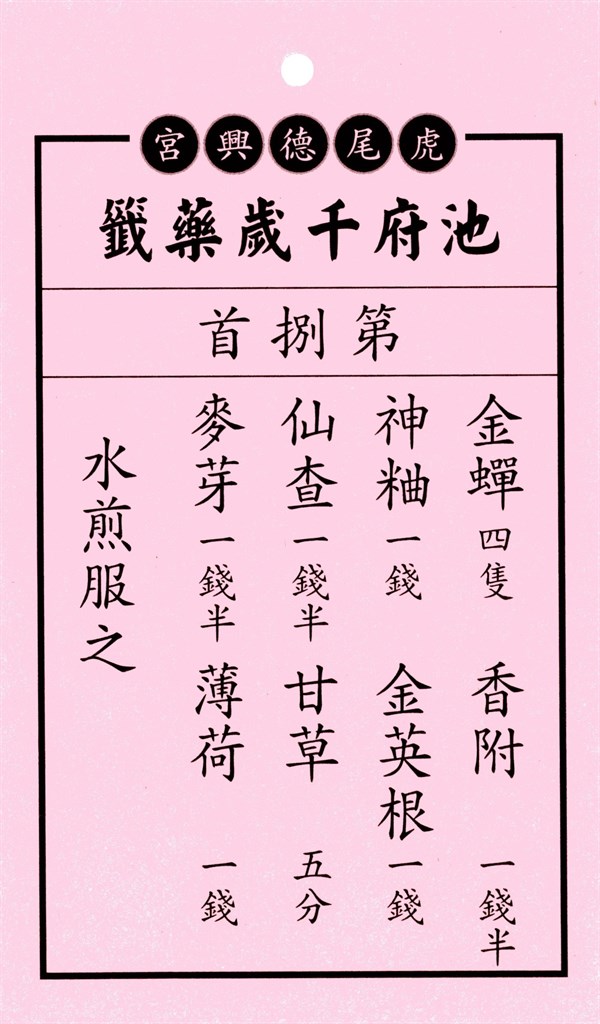 虎尾德興宮
池府千歲藥籤
第捌首
金蟬四隻 香附一錢半
神粬一錢 金英根一錢
仙查一錢半 甘草五分
麥芽一錢半 薄荷一錢
水煎服之